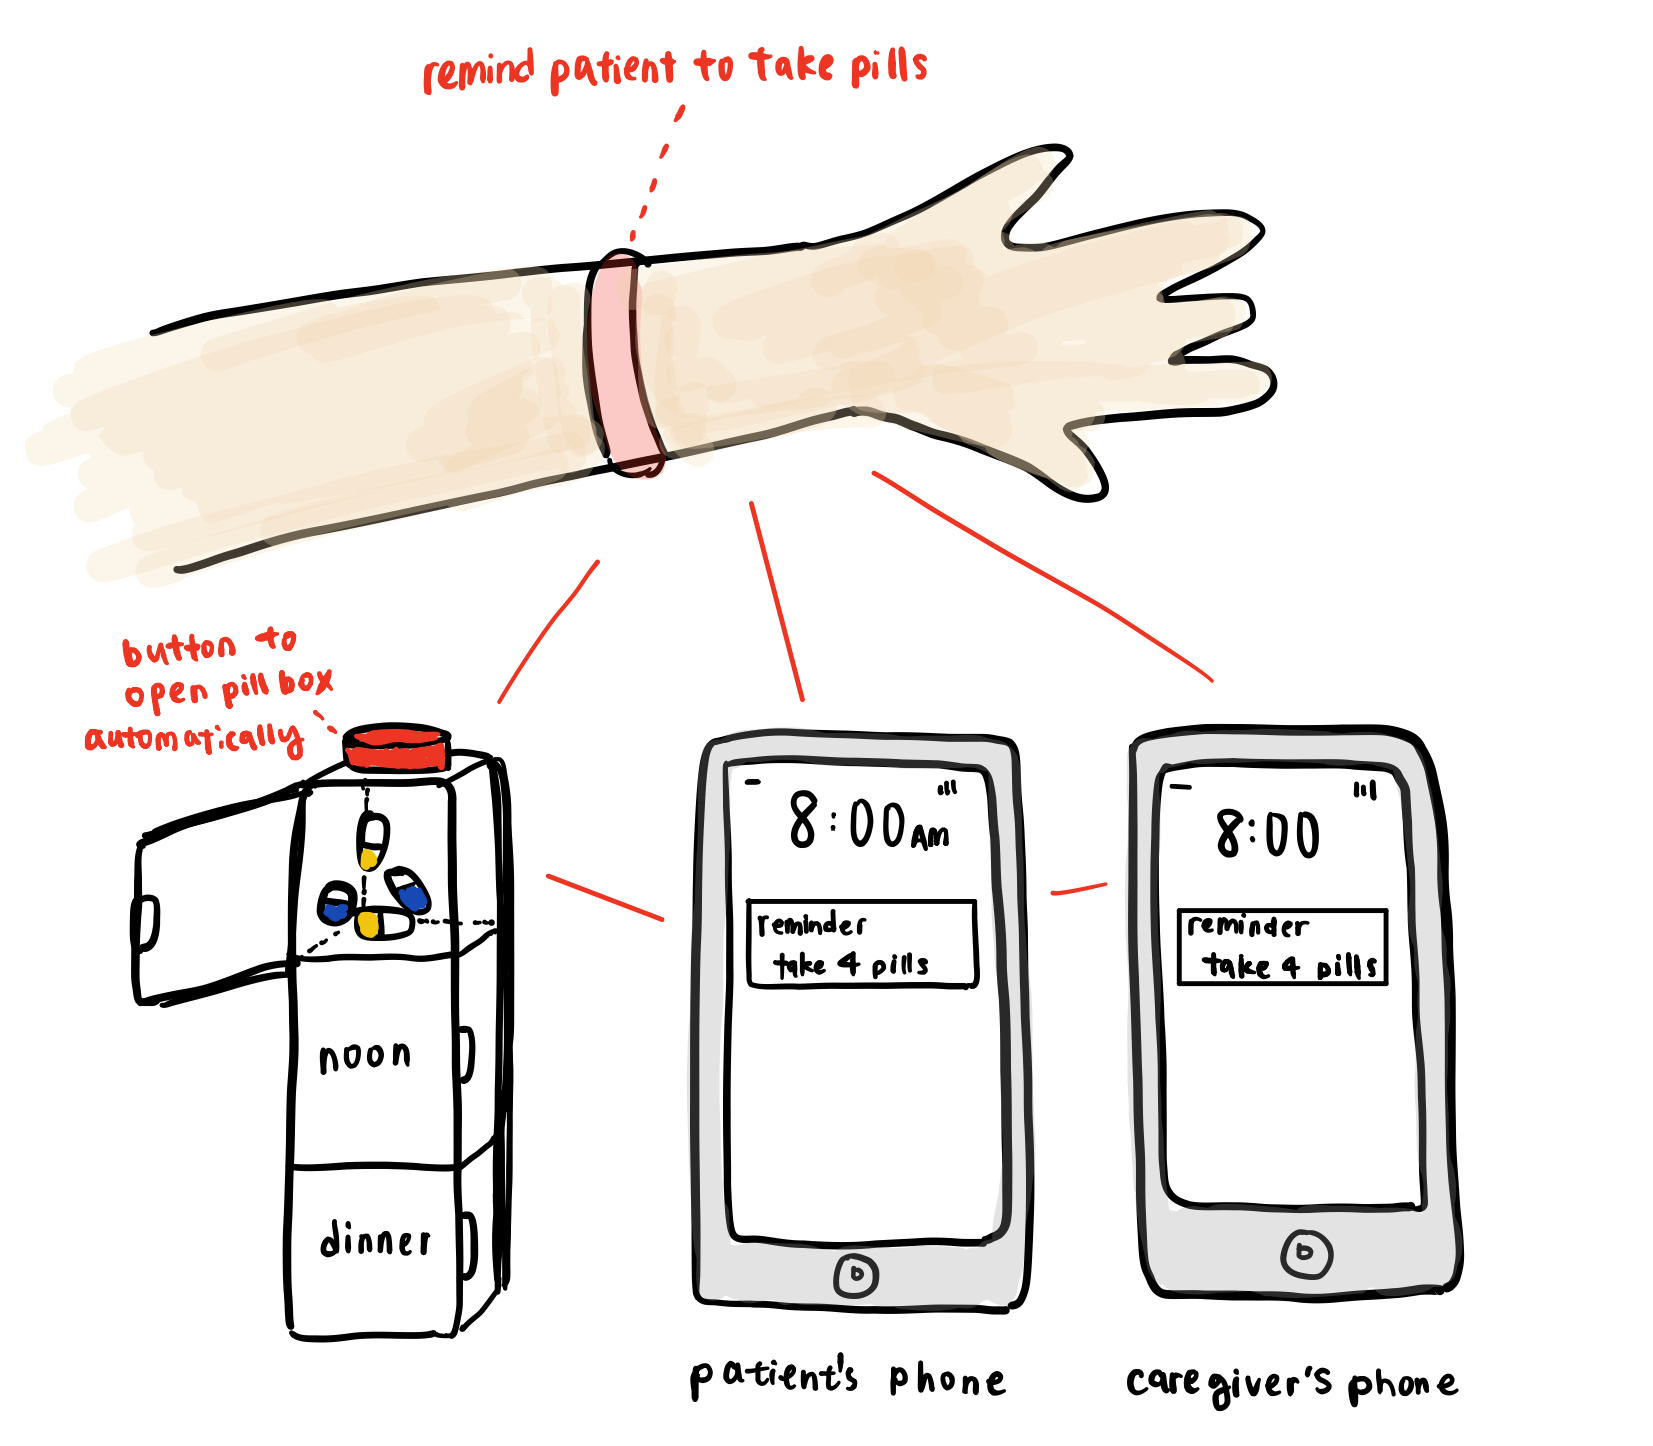 remind patient to take pills
button to
open pill box
automatically
noon
dinner
8:00 AM
reminder
take 4 pills
patient's phone
8:00
reminder
take 4 pills
caregiver's phone